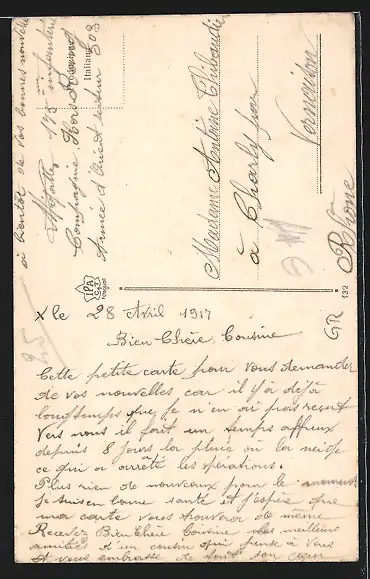 x le 28 Avril 1917
Bien Chère Cousine
Cette petite carte pour vous demander
de vos nouvelles car il y a déjà
longtemps que je n en ai pas reçut
Vers nous il fait un temps affreux
depuis 8 jours la pluie ou la neige
ce qui a arrêté les opérations.
Plus rien de nouveaux pour le moment
Je suis en bonne santé et j'espère que
ma carte vous trouvera de même
Recevez Bien Chère Cousine les meilleurs
amitiés d un cousin qui pense à vous
et vous embrasse de tout son cœur
à bientôt de vos bonnes nouvelles
175 infanterie
Compagnie Hors Rang
Armée d'Orient secteur 508
Italiana
Madame Antoine Thibaudier
à Charly par
Vernaison
Rhône
IPA
CT
132
GR